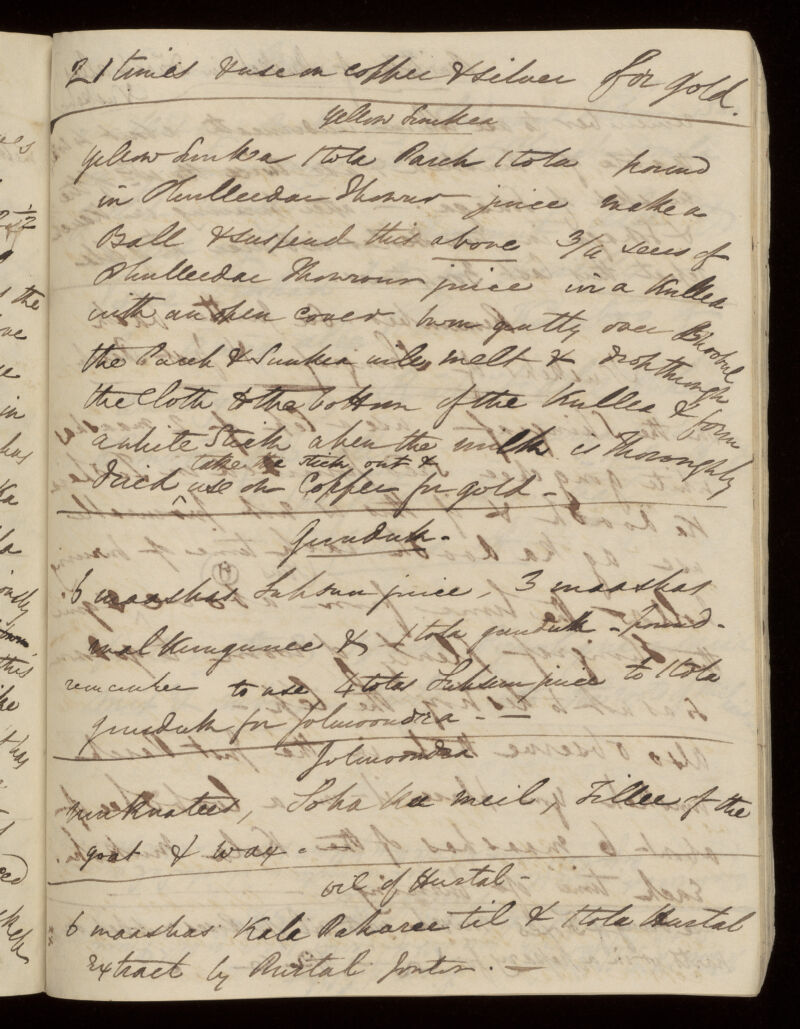 21 times & use on copper & silver for gold.
Yellow Sunkea
Yellow Sunkea 1 tola Parch 1 tola pound
in Phulleedar Thowur juice make a
Ball & suspend this above 3/4 seers of
Phulleedar Thowrour juice in a Kullea
with an open cover burn gently over Bhoobul
the Parch & Sunkea will melt & drop through
the cloth & the bottom of the Kullea & form
a white Stick when the milk is thoroughly
dried take the stick out & use on Copper for gold -
Gunduk -
6 maashas Luhsun juice, 3 maashas
mal Kungunee & 1 tola gunduk - pound -
remember to use 4 tolas Luhsun juice to 1 tola
gunduk for Jolmoondra - -
Jolmoondra
Loha kee meil, Tillee of the
goat & wax. -
oil of Hurtal -
6 maashas Kala Paharee til & 1 tola Hurtal
Extract by Puttal Jontur. -